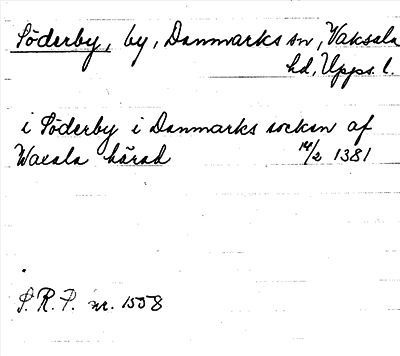 Söderby, by, Danmarks sn, Vaksala
hd, Upps. l.
i Söderby i Danmarks sockan af
Waxala härad 14/2 1381
S. R. P. nr. 1558